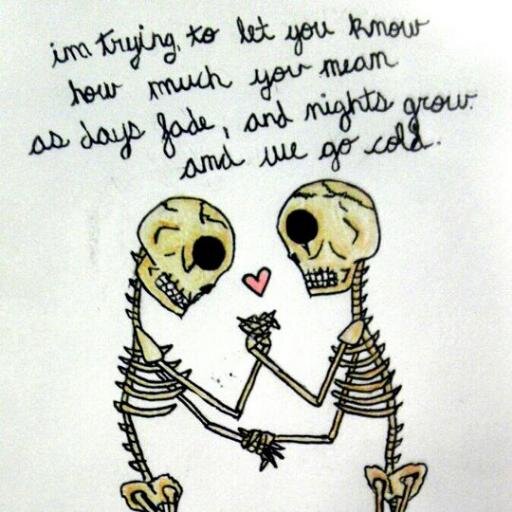 im trying to let you know
how much you mean
as days fade, and nights grow
and we go cold.